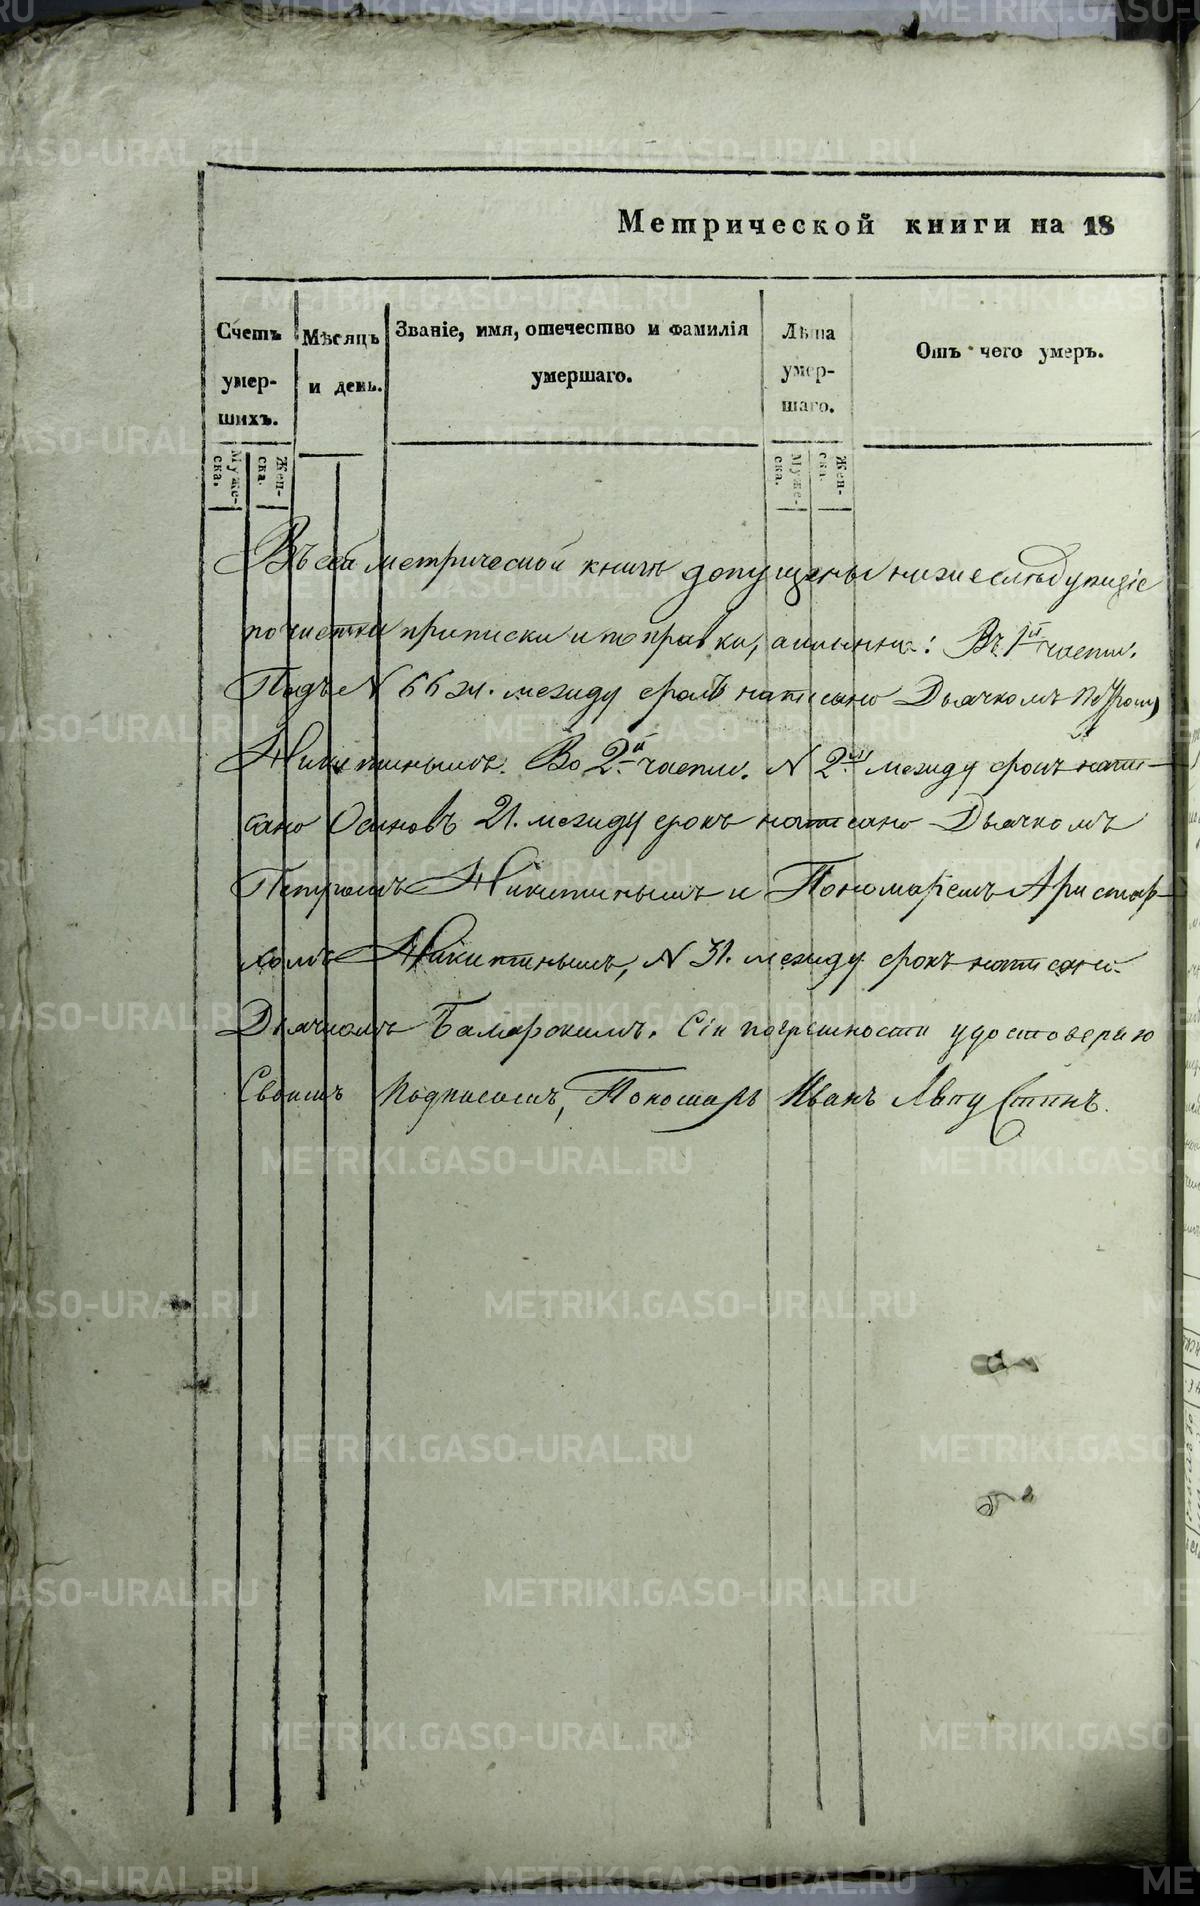 Метрической книги на 18
Счетъ умер-шихъ.
Муже-ска.
Жен-ска.
Мѣсяцъ и день.
Званіе, имя, отечество и фамилія умершаго.
Лѣта умер-шаго.
Муже-ска.
Жен-ска.
Отъ чего умеръ.
Въ сей метрической книгѣ допущены нижеслѣдующіе
почистки приписки и поправки, а именно: Въ 1й части.
Подъ N 66 ж. между срокъ написано Дьячкомъ Петромъ
Никитинымъ. Во 2й части. N 2й между срокъ напи-
сано Осиновъ 21. между срокъ написано Дьячкомъ
Петромъ Никитинымъ и Пономаремъ Аристар-
хомъ Никитинымъ, N 31. между срокъ написано
Дьячкомъ Сіи погрешности удостоверяю
Своимъ Подписомъ, Пономарь Иванъ
METRIKI.GASO-URAL.RU